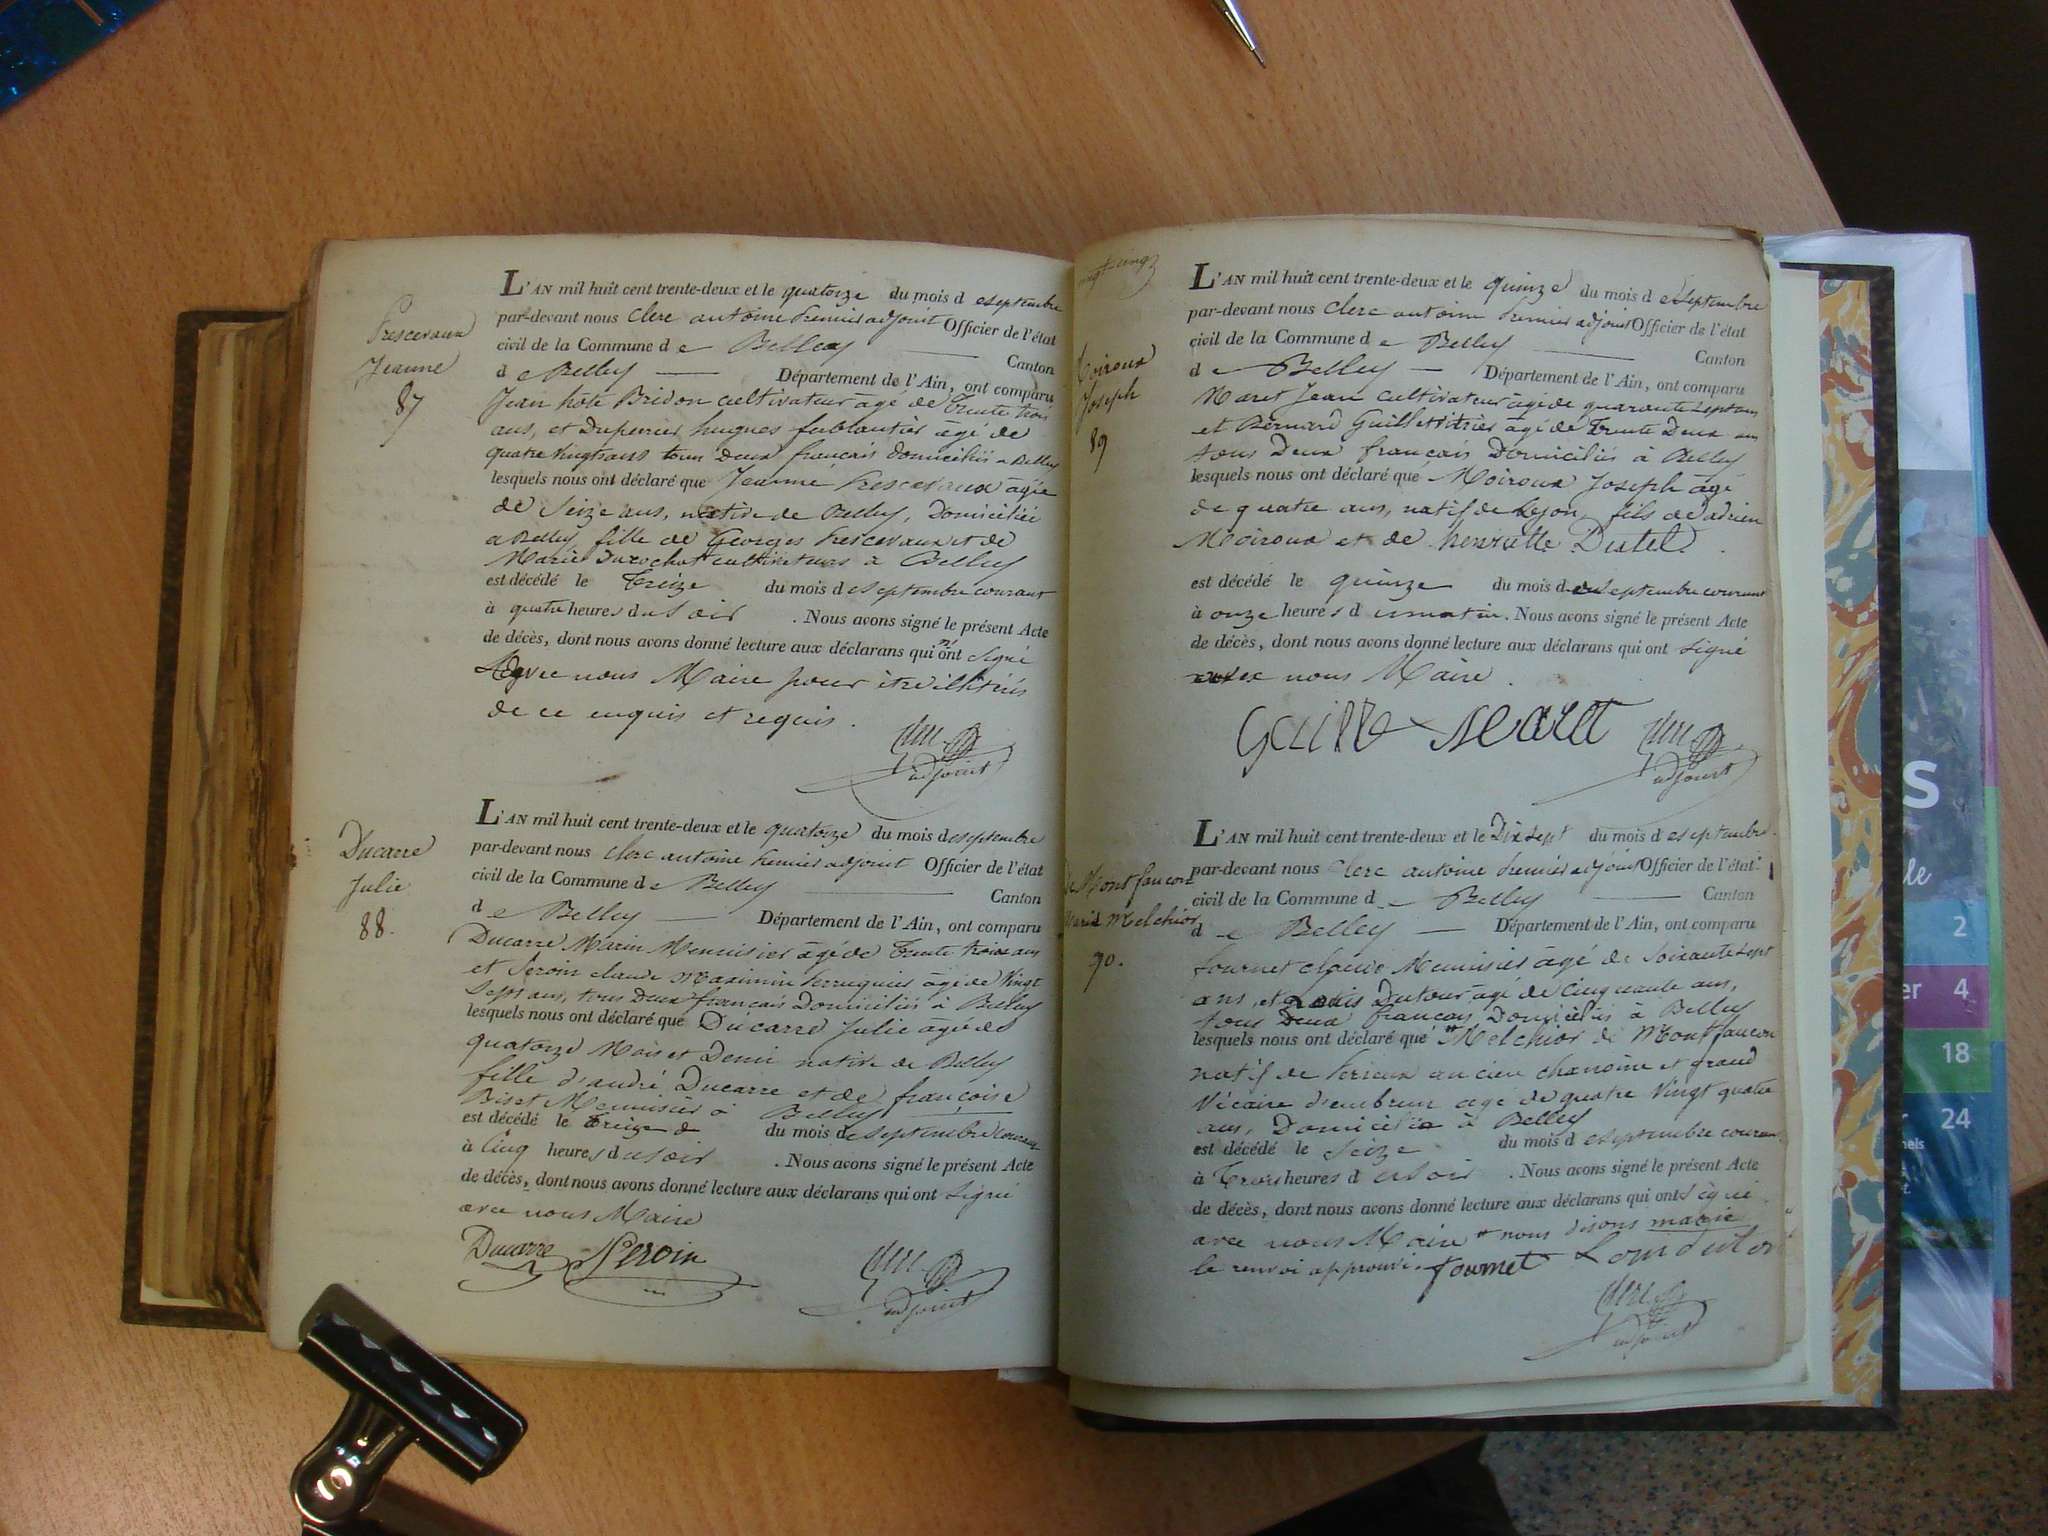 Jeanne
87
L'AN mil huit cent trente-deux et le quatorze du mois d eseptembre
par-devant nous Clerc antoine premier adjoint Officier de l'état
civil de la Commune d e Belley Canton
d e Belley Département de l'Ain, ont comparu
Jean hote Bridon cultivateur âgé de trente trois
ans, et Duperrier hugues ferblantier âgé de
quatre vingts ans tous deux français domiciliés a Belley
lesquels nous ont déclaré que Jeanne âgée
de Seize ans, native de Belley, Domiciliée
a Belley, fille de Georges et de
Marie cultivateurs à Belley
est décédé le treize du mois d eseptembre courant
à quatre heures dusoir . Nous avons signé le présent Acte
de décès, dont nous avons donné lecture aux déclarans qui n'ont signé
avec nous Maire pour être illitérés
de ce enquis et requis.
adjoint
Ducarre
Julie
88.
L'AN mil huit cent trente-deux et le quatorze du mois d eseptembre
par-devant nous clerc antoine premier adjoint Officier de l'état
civil de la Commune d e Belley Canton
d e Belley Département de l'Ain, ont comparu
Ducarre Marin Menuisier âgé de trente trois ans
et Peroin claude Maximin perruquier âgé de Vingt
Sept ans, tous Deux français Domiciliés à Belley
lesquels nous ont déclaré que Ducarre Julie âgé de
quatorze Mois et Demi native de Belley
fille d'andré Ducarre et de françoise
Biset Menuisier à Belley
est décédé le treize du mois d eseptembre courant
à Cinq heures dusoir . Nous avons signé le présent Acte
de décès, dont nous avons donné lecture aux déclarans qui ont signé
avec nous Maire
Ducarre Peroin
adjoint
Moiroux
Joseph
89
L'AN mil huit cent trente-deux et le quinze du mois d eseptembre
par-devant nous Clerc antoine premier adjoint Officier de l'état
civil de la Commune d e Belley Canton
d e Belley Département de l'Ain, ont comparu
Maret Jean cultivateur âgé de quarante sept ans
et Bernard Guille vitrier âgé de trente Deux ans
tous Deux français Domiciliés à Belley
lesquels nous ont déclaré que Moiroux Joseph âgé
de quatre ans, natif de Lyon, fils de adrien
Moiroux et de henriette
est décédé le quinze du mois d eseptembre courant
à onze heures d umatin. Nous avons signé le présent Acte
de décès, dont nous avons donné lecture aux déclarans qui ont signé
avec nous Maire.
Guille Maret
adjoint
de Montfaucon
Marie Melchior
90.
L'AN mil huit cent trente-deux et le Dix sept du mois d eseptembre
par-devant nous Clerc antoine premier adjoint Officier de l'état
civil de la Commune d e Belley Canton
d e Belley Département de l'Ain, ont comparu
fournet claude Menuisier âgé de soixante sept
ans, et Louis Dutour âgé de cinquante ans,
tous Deux français Domiciliés à Belley
lesquels nous ont déclaré que Melchior de Montfaucon
natif de ancien chanoine et grand
Vicaire d'embrun âgé de quatre Vingt quatre
ans, Domicilié à Belley
est décédé le Seize du mois d eseptembre courant
à trois heures d usoir . Nous avons signé le présent Acte
de décès, dont nous avons donné lecture aux déclarans qui ont signé
avec nous Maire nous disons marie
le renvoi approuvé. fournet Loui dutor
adjoint
S
2
er 4
18
24